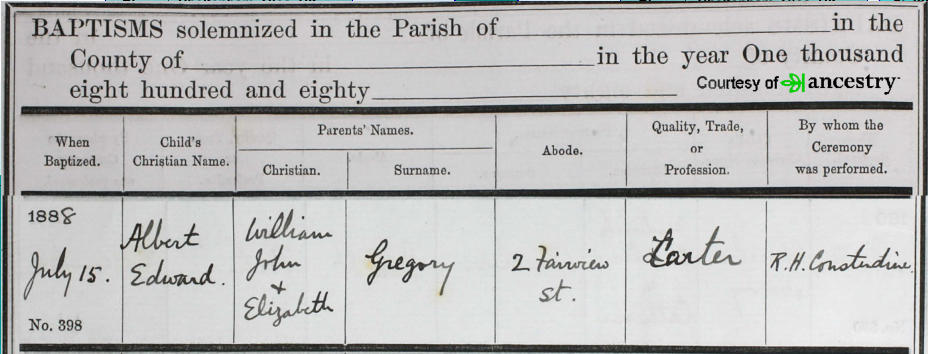 BAPTISMS solemnized in the Parish of in the
County of in the year One thousand
eight hundred and eighty
Courtesy of ancestry
When Baptized.
Child's Christian Name.
Parents' Names.
Christian.
Surname.
Abode.
Quality, Trade, or Profession.
By whom the Ceremony was performed.
1888
July 15.
No. 398
Albert
Edward.
William
John
+
Elizabeth
Gregory
2 Fairview
St.
Carter
R.H. Consterdine.